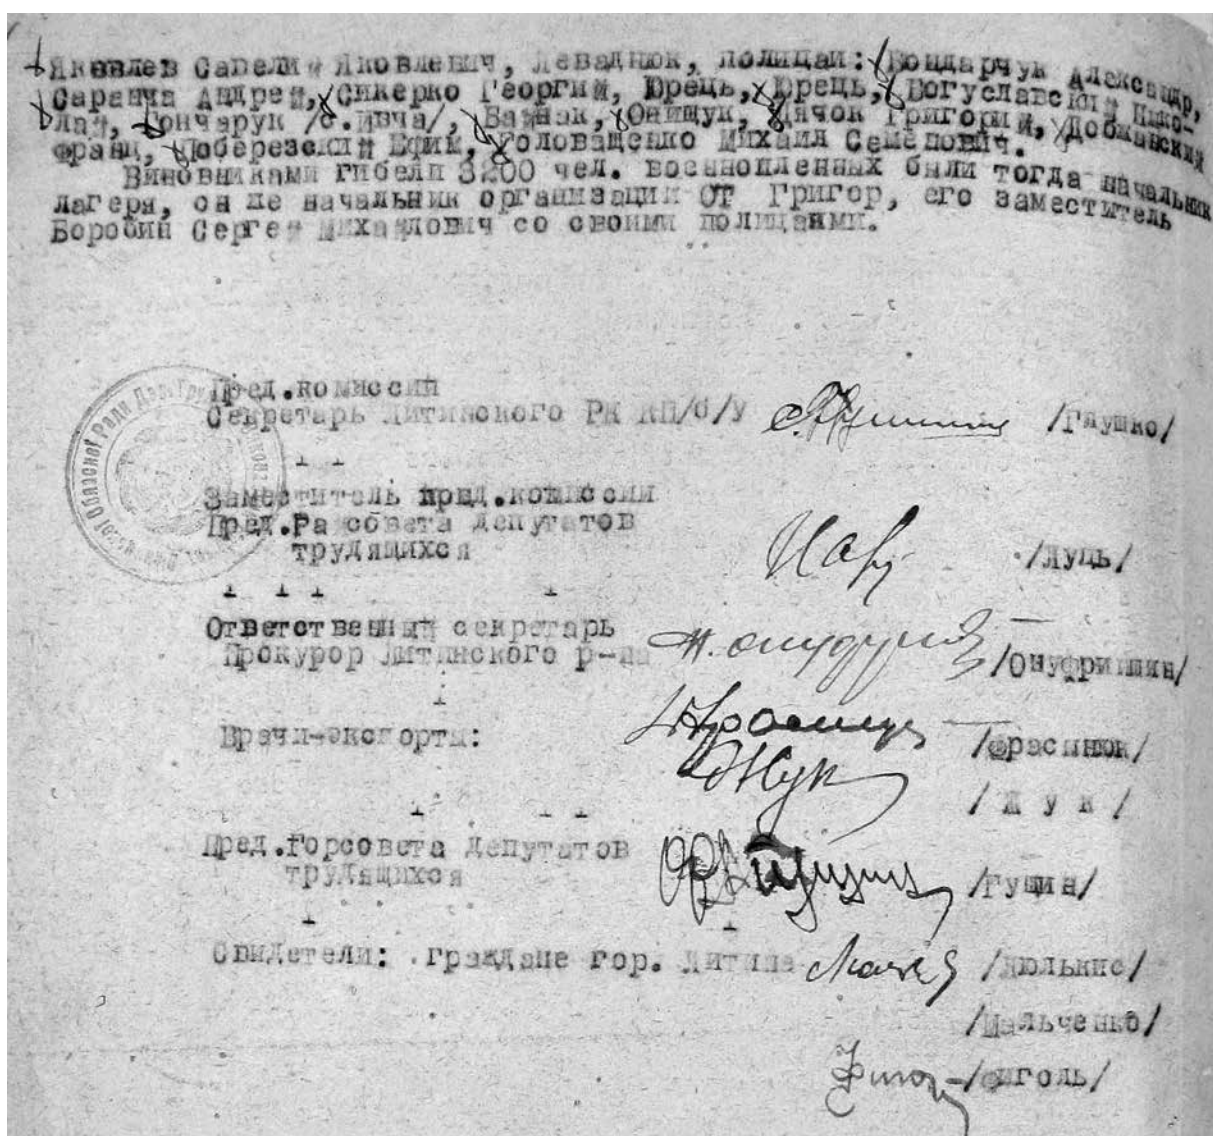 Яковлев Савелий Яковлевич, Леваднюк, полицаи: Бондарчук Александр,
Саранча Андрей, Сикерко Георгий, Юрець, Юрець, Богуславский Нико-
лай, Гончарук /с.Ивча/, Бажнак, Онищук, Дячок Григорий, Добжанский
Франц, Любережский Ефим, Головащенко Михаил Семенович.
Виновниками гибели 3200 чел. военнопленных были тогда начальник
лагеря, он же начальник организации ОТ Григор, его заместитель
Боробин Сергей Михайлович со своими полицаями.
Пред.комиссии
Секретарь Литинского РК КП/б/У /Глушко/
Заместитель пред.комиссии
Пред.Райсовета депутатов
трудящихся /Луць/
Ответственный секретарь
Прокурор Литинского р-на /Онуфришин/
Врачи-эксперты: /Фрасинюк/
/Ж у к /
Пред.Горсовета депутатов
трудящихся /Гущин/
Свидетели: граждане гор. Литина /Люлькис/
/Мальченко/
/Фиголь/